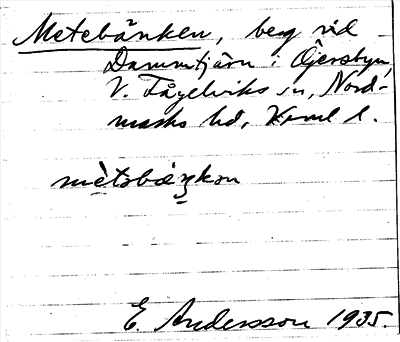 Metebänken, berg vid
Dammtjärn i Öjersbyn,
V. Fågelviks sn, Nord-
marks hd, Vrml l.
mètabæŋkən
E. Andersson 1935.